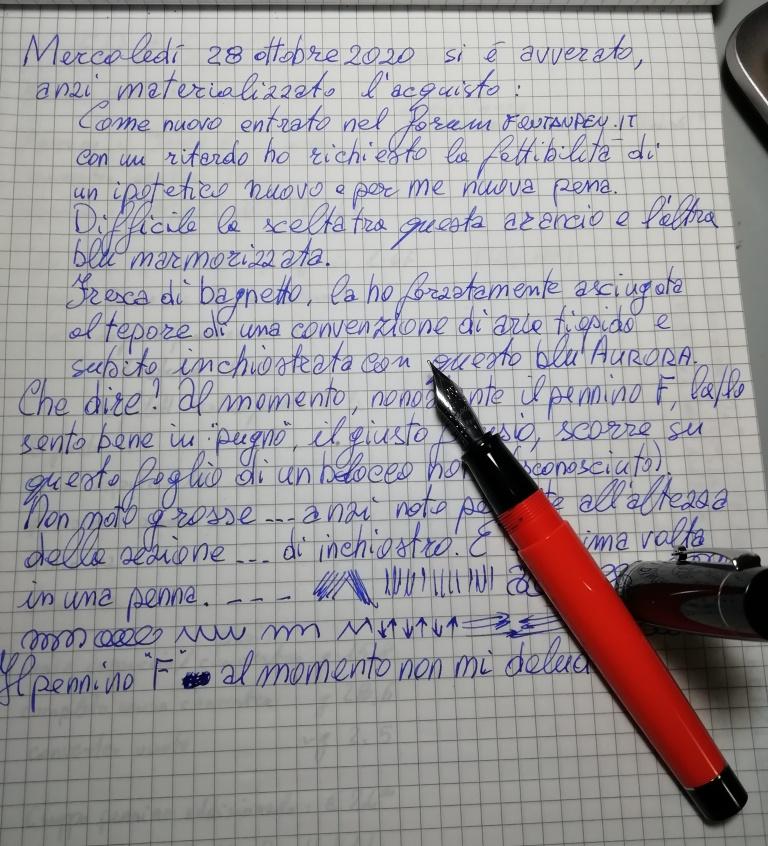 Mercoledì 28 ottobre 2020 si è avverato,
anzi materializzato l'acquisto:
Come nuovo entrato nel forum FOUNTAINPEN.IT
con un ritardo ho richiesto la fattibilità di
un ipotetico nuovo e per me nuova penna.
Difficile la scelta tra questa arancio e l'altra
blu marmorizzata.
Fresca di bagnetto, la ho forzatamente asciugata
al tepore di una convenzione di aria tiepida e
subito inchiostrata con questo blu AURORA.
Che dire! Al momento, il pennino F, la
sento bene in "pugno", il giusto scorre su
questo foglio di un blocco (sconosciuto).
Non noto grosse --- anzi noto all'altezza
della sezione --- di inchiostro. È volta
in una penna. ---
Il pennino "F" al momento non mi